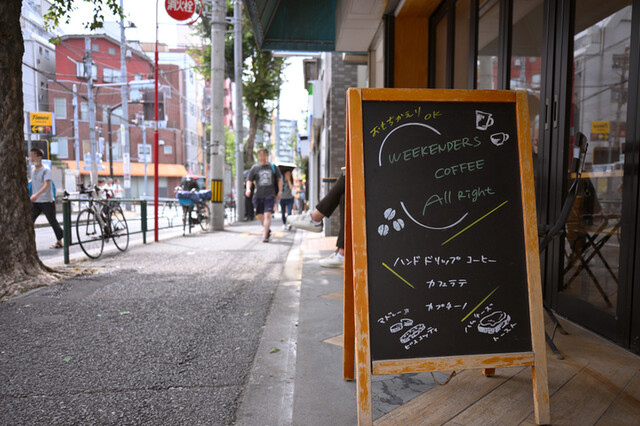 消火栓
おもちかえりOK
WEEKENDERS
COFFEE
All Right
ハンドドリップコーヒー
カフェラテ
カプチーノ
マドレーヌ
ビスコッティ
ハムチーズ
トースト